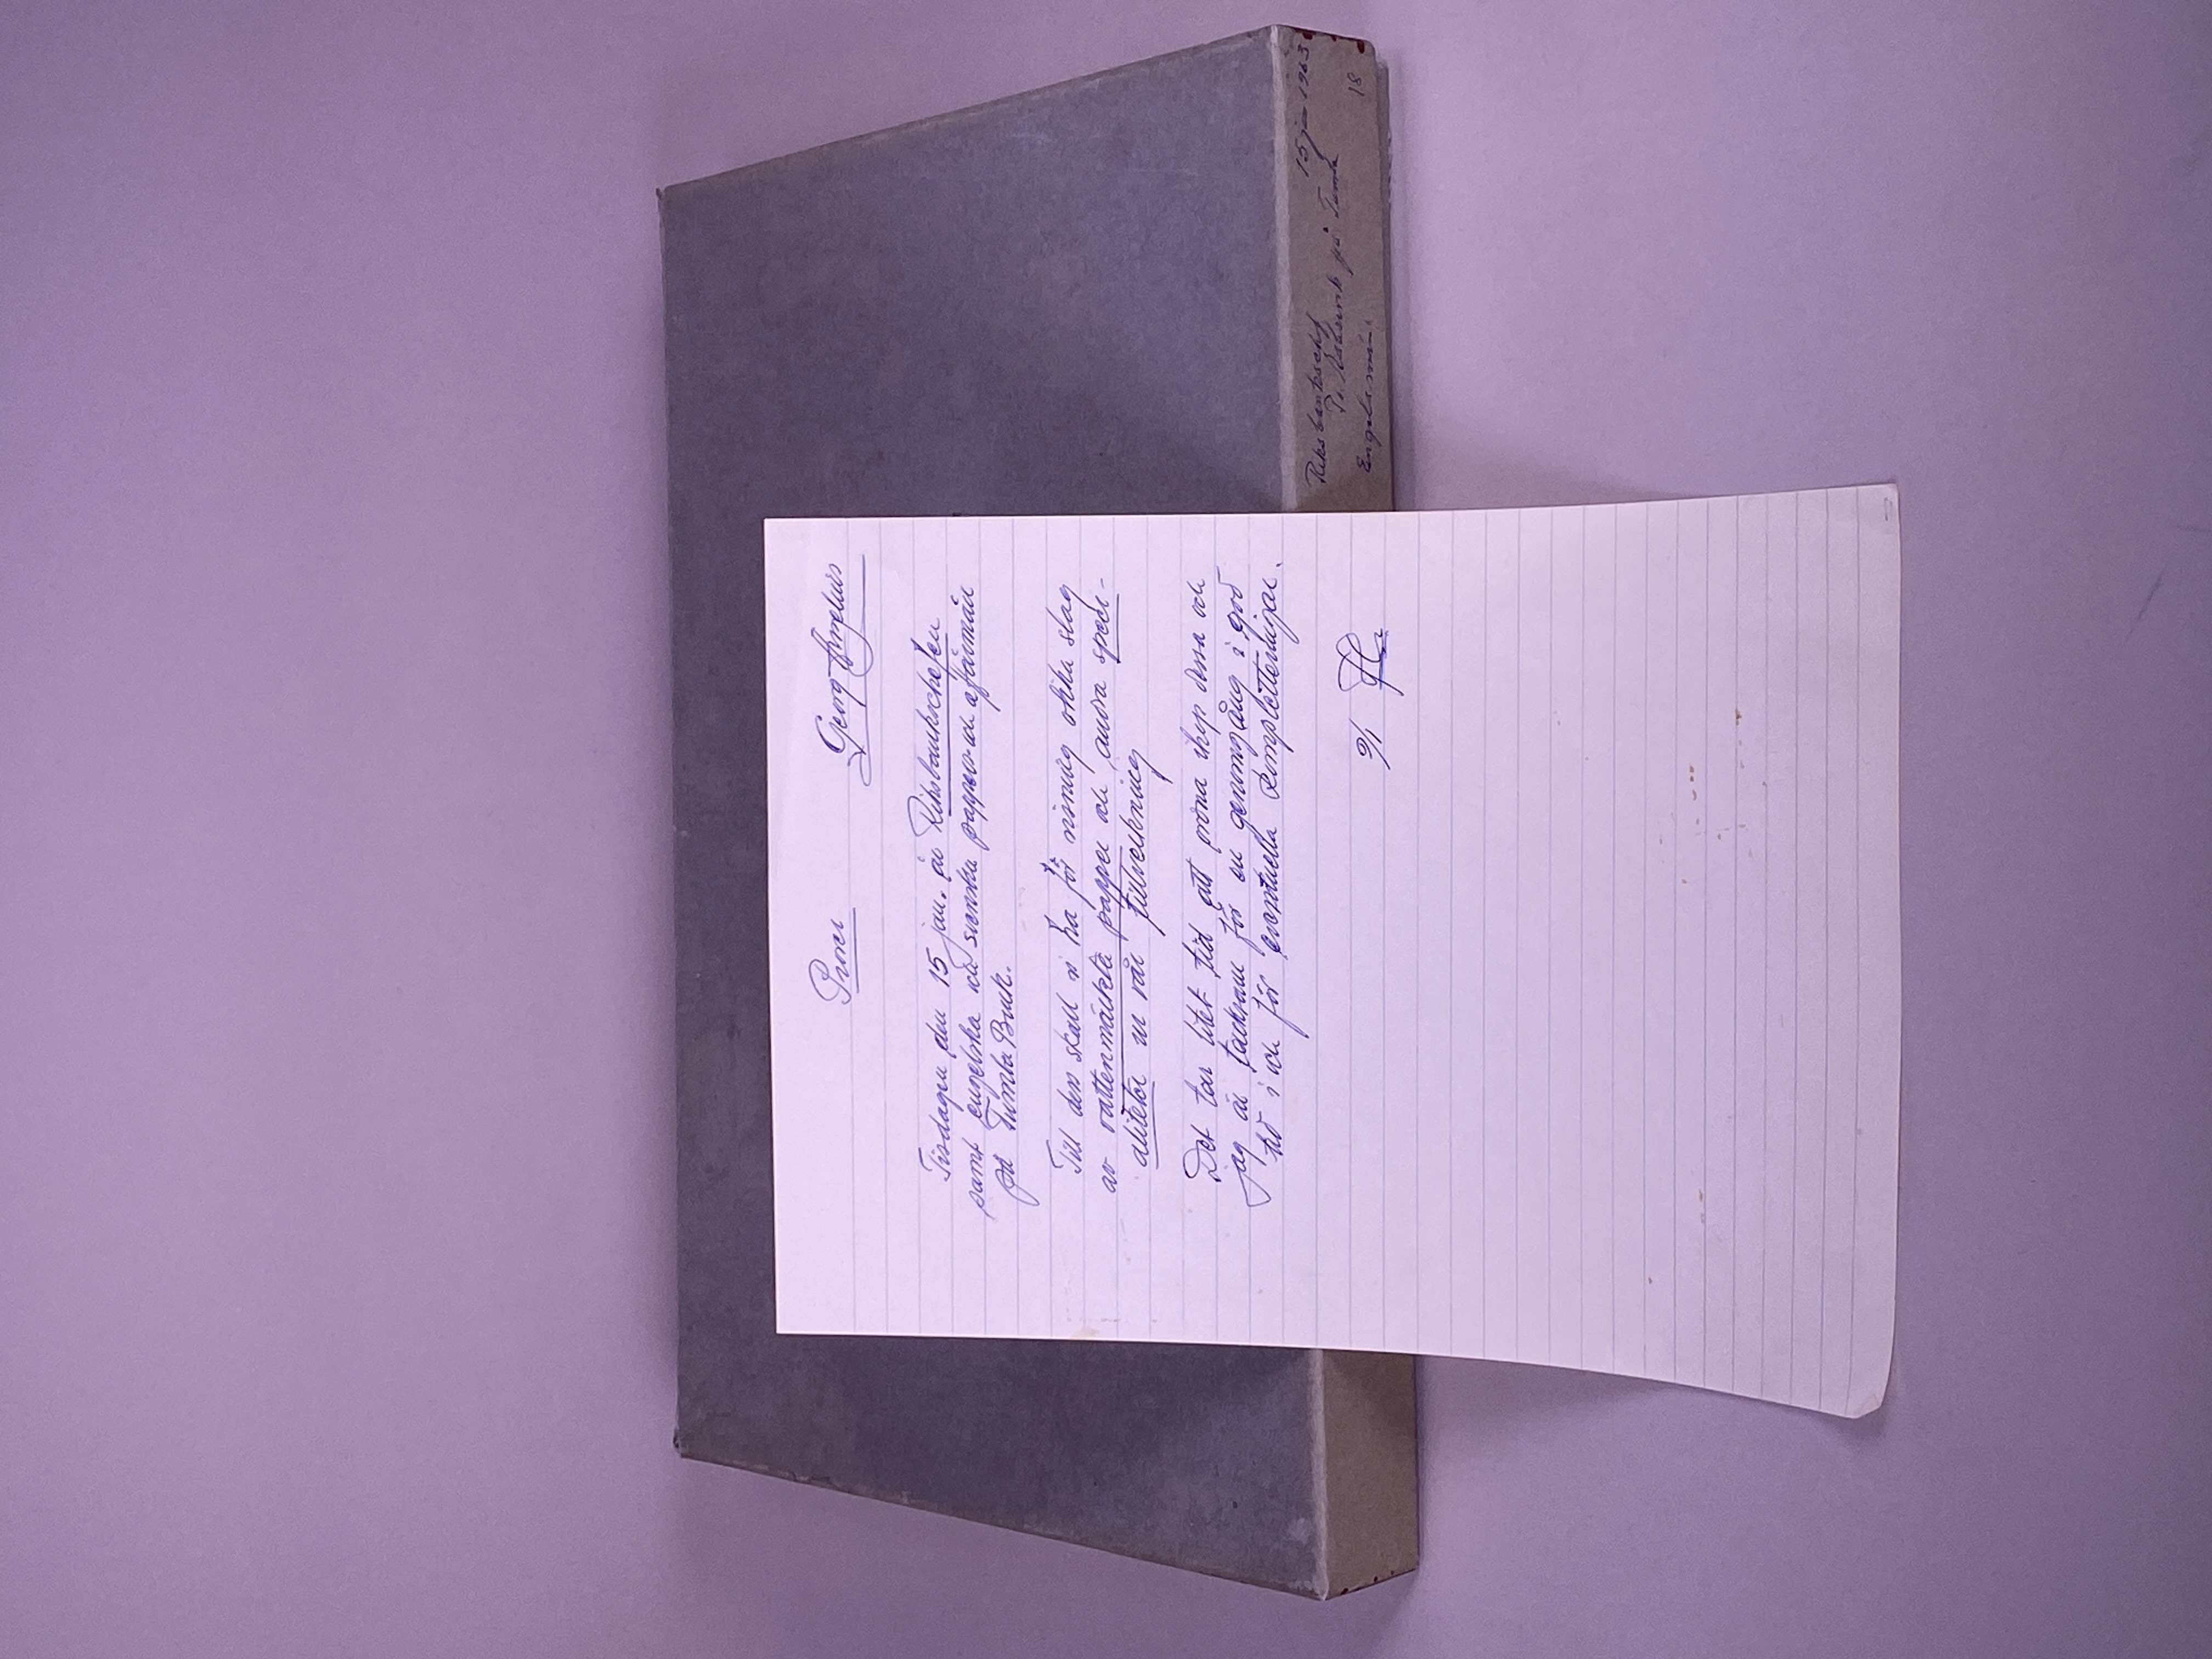 Prover Georg
Tisdagen den 15 jan. är Riksbankschefen
samt engelska och svenska pappers- och affärsmän
på Tumba Bruk.
Till den skall vi ha för visning olika slag
av vattenmärkta papper och andra speci-
aliteter ur vår tillverkning
Det tar litet tid att prova ihop dessa och
jag är tacksam för en genomgång i god
tid i och för eventuella kompletteringar.
9/1
Riksbankschef 15 jan 1963
på Tumba 18
Engelsmän